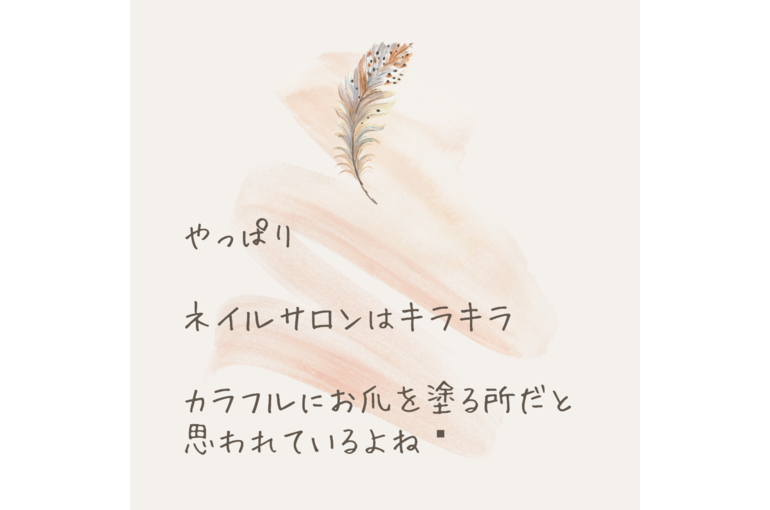 やっぱり
ネイルサロンはキラキラ
カラフルにお爪を塗る所だと
思われているよね